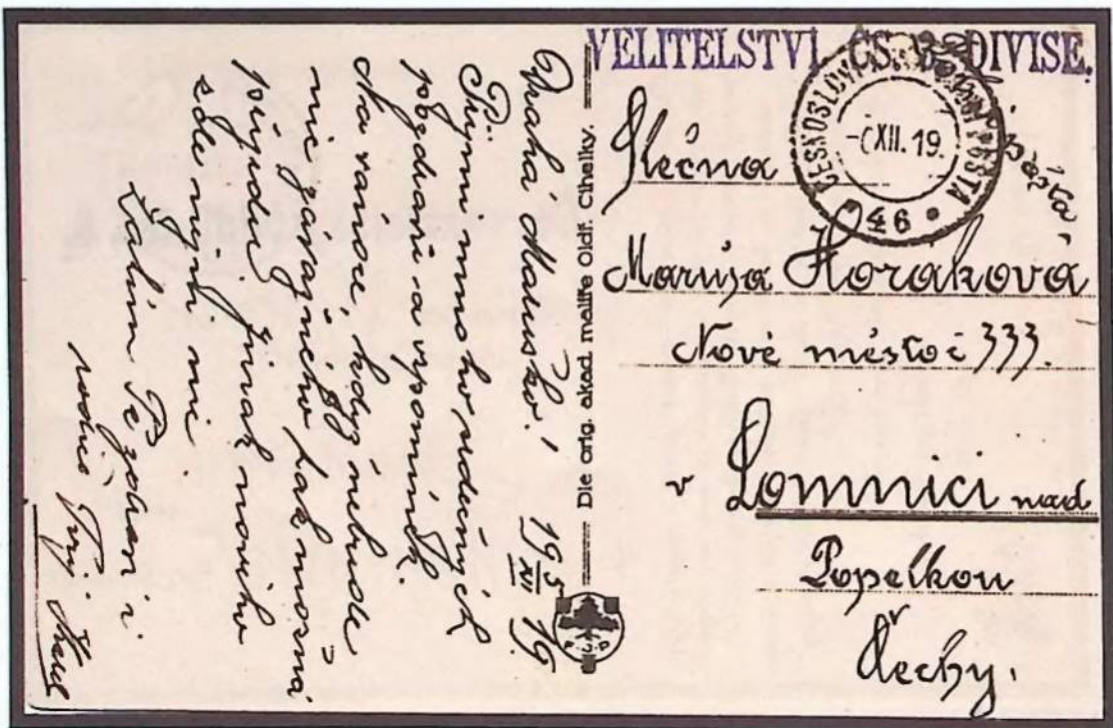 VELITELSTVÍ ČS. DIVISE.
ČESKOSLOV. POLNÍ POŠTA
XII. 19.
46
pošta.
Slečna
Maruša Horáková
Nové město č 333.
v Lomnici nad
Popelkou
Čechy.
Dle orig. akad. malíře Oldř. Cihelky.
P J P
Drahá Maruško! 19 5/XII 19.
Přijmi mnoho srdečných
pozdravů a vzpomínek.
Na vánoce, když nebude
nic závažného pak možná
přijedu. Jinak nového
zde nyní nic
Líbám Tě zdraví i
rodiče Tvůj